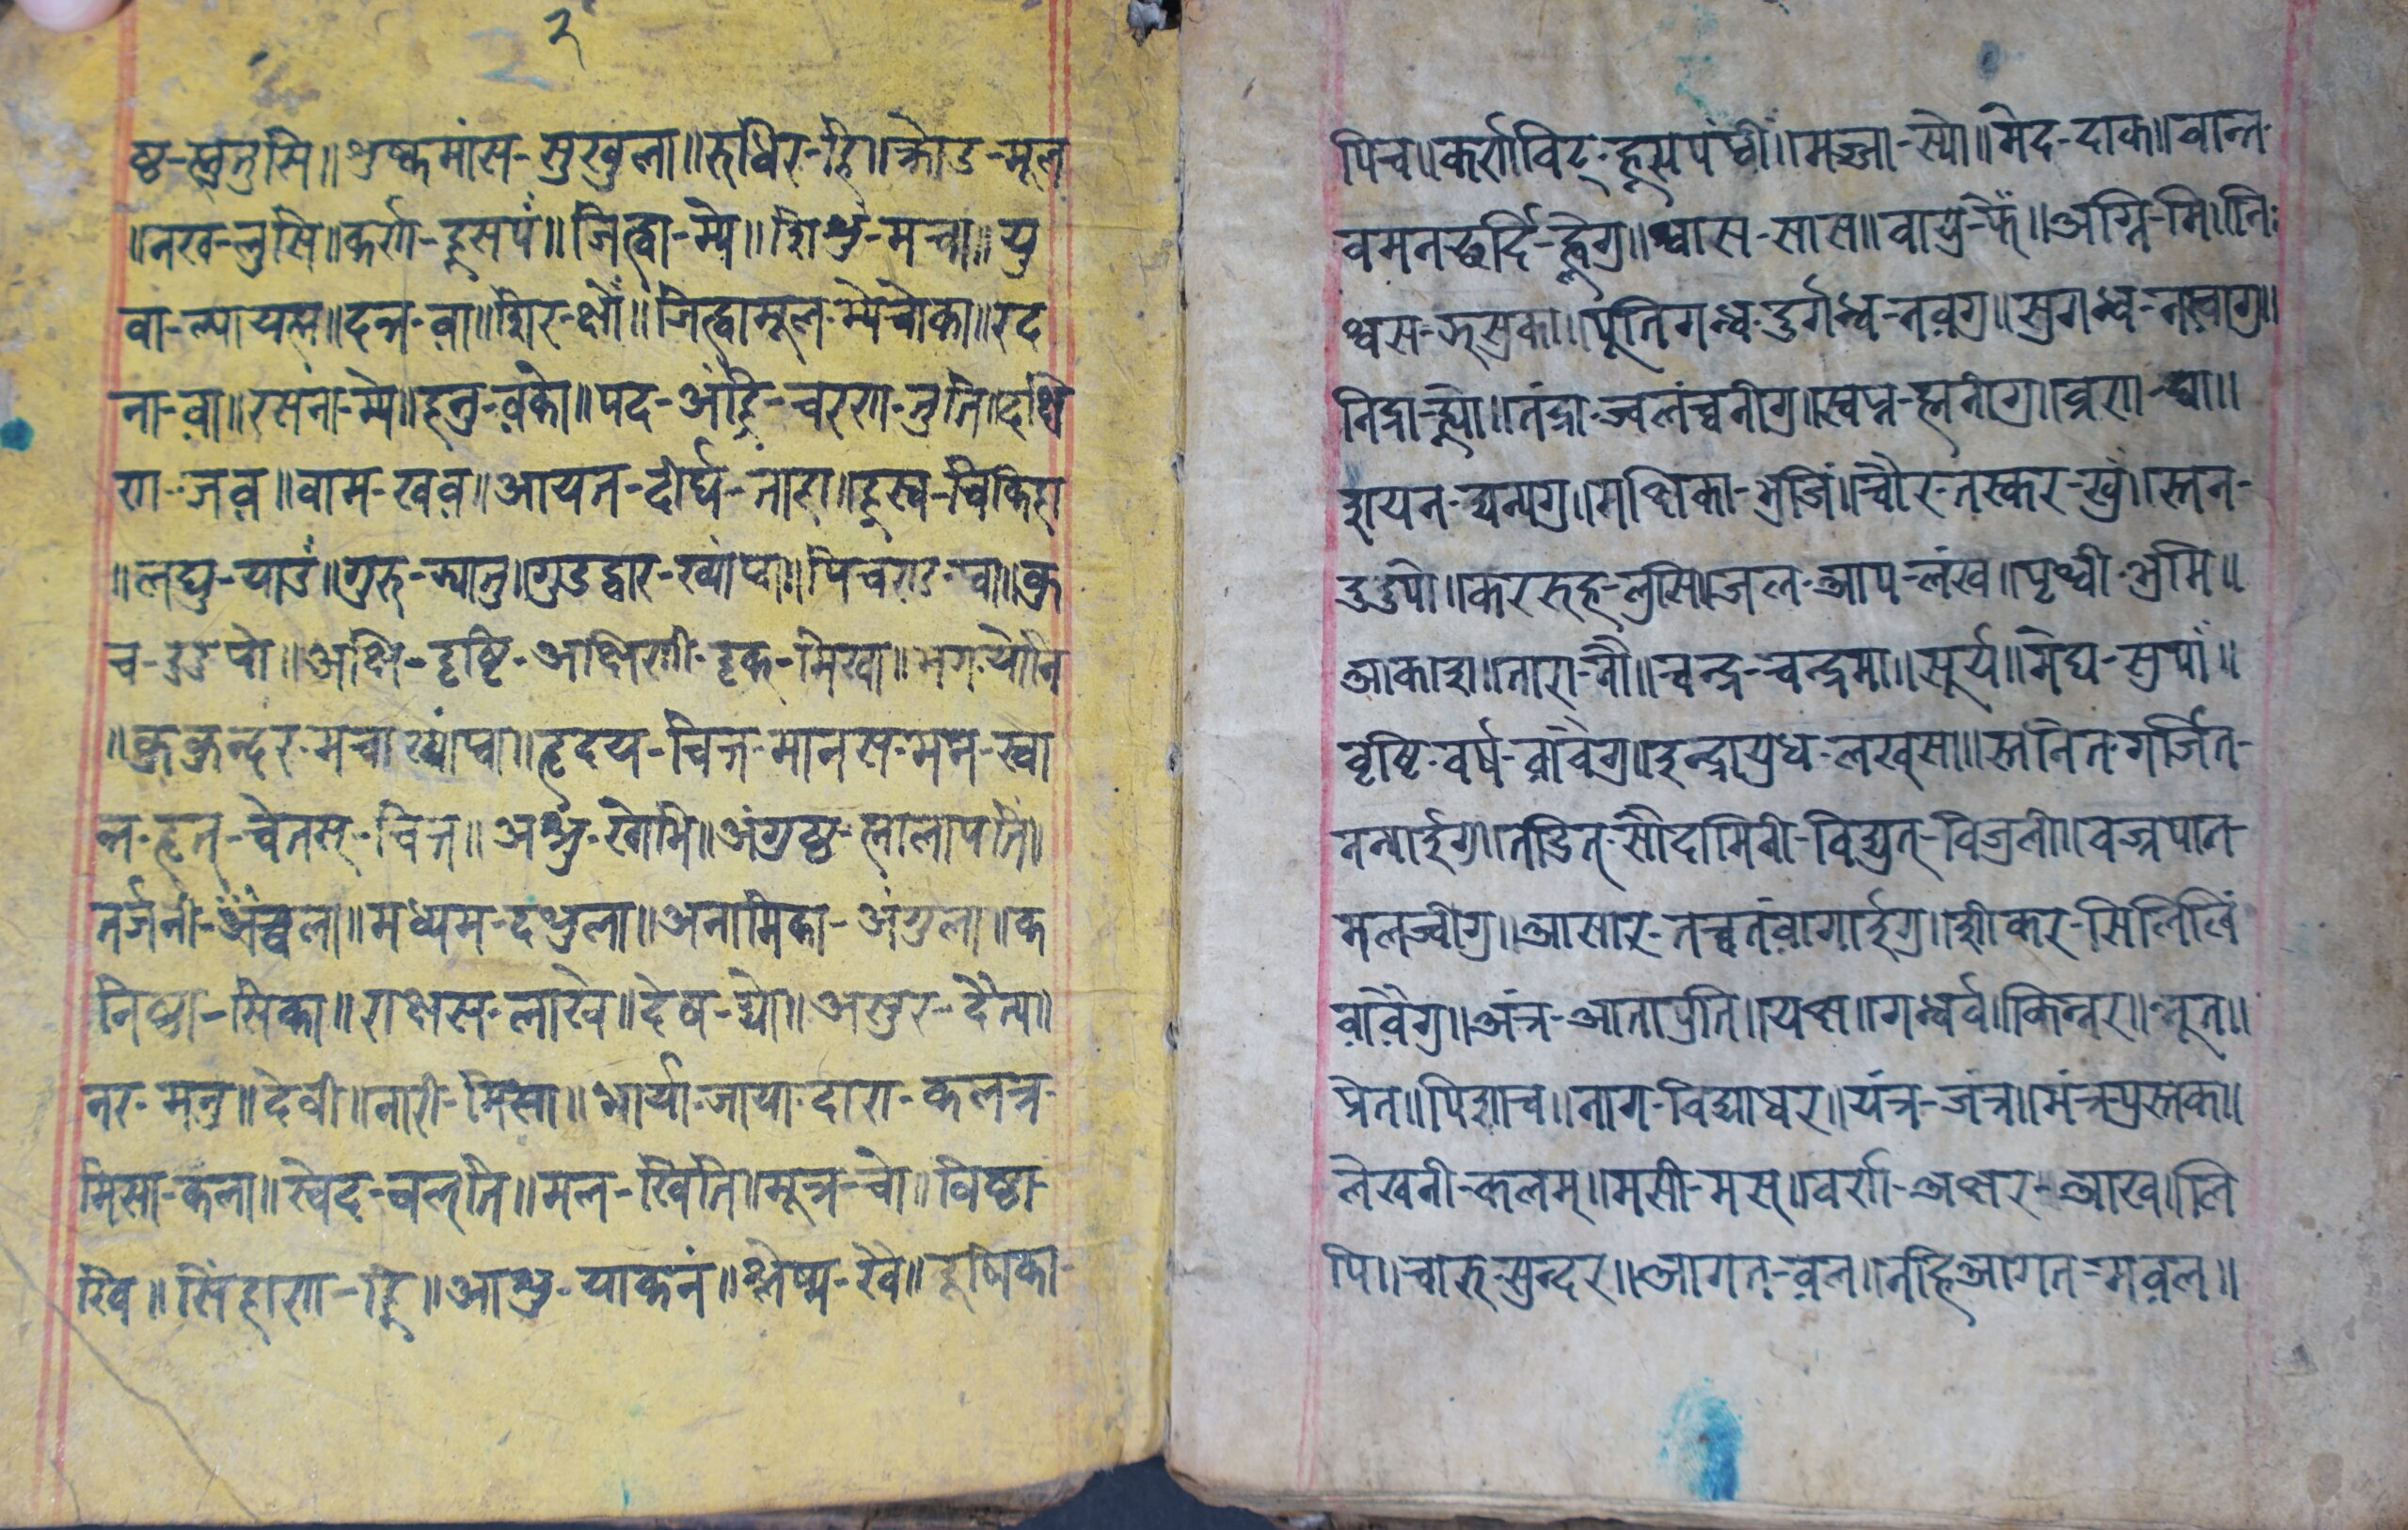 २
ष्ठ-म्हुतुसि॥शुष्कमांस-सुखुला॥रुधिर-हि॥क्रोड-मूल
॥नख-लुसि॥कर्ण-ह्नसपं॥जिह्वा-म्ये॥शिश्रु-मचा॥यु
वा-ल्यायह्म॥दन्त-वा॥शिर-क्षों॥जिह्वामूल-म्येचोका॥रद
ना-वा॥रसना-म्ये॥हनु-वंको॥पद-अंह्रि-चरण-तुति॥दक्षि
ण-जव॥वाम-खव॥आयत-दीर्घ-ताहा॥ह्रस्व-चिकिहा
॥लघु-याउं॥गुरु-झ्यातु॥गुडद्वार-ख्यांप्वा॥पिचण्ड-प्वा॥कु
च-दुदुपो॥अक्षि-दृष्टि-अक्षिणी-दृक-मिखा॥भग-योनि
॥कुकुन्दर-मचाख्यांप्वा॥हृदय-चित्त-मानस-मन-ख्वा
ल-हृत्-चेतस्-चित्त॥अश्रु-खोभि॥अंगुष्ठ-ह्मालापतिं॥
तर्जनी-चोलां॥मध्यम-दथुला॥अनामिका-अंगुला॥क
निष्ठा-सिका॥राक्षस-लाखे॥देव-द्यो॥असुर-दैत्य॥
नर-मनु॥देवी॥नारी-मिसा॥भार्या-जाया-दारा-कलत्र-
मिसा-कला॥स्वेद-चलति॥मल-खिति॥मूत्र-चो॥विष्ठा-
खि॥सिंहाण-हि॥आशु-याकनं॥श्लेष्म-खै॥दूषिका-
पिच॥कर्णविट्-ह्नसपंप्वीं॥मज्जा-स्यो॥मेद-दाक॥वान्त-
वमनछर्दि-ह्वेगु॥श्वास-सास॥वायु-फै॥अग्नि-मि॥निः
श्वस-झसुका॥पूतिगन्ध-दुर्गन्ध-नवगु॥सुगन्ध-नस्वागु॥
निद्रा-न्ह्यो॥तंद्रा-ज्वलंच्वनीगु॥स्वप्न-ह्मनीगु॥व्रण-घा॥
शयन-द्यन्यगु॥मक्षिका-भुजिं॥चौर-तस्कर-खुं॥स्तन-
दुदुपो॥कररुह-लुसि॥जल-आप-लंख॥पृथ्वी-भुमि॥
आकाश॥तारा-नौ॥चन्द्र-चन्द्रमा॥सूर्य॥मेघ-सुपां॥
वृष्टि-वर्ष-वांवैगु॥इन्द्रायुध-लखुसा॥स्तनित-गर्जित-
नन्यार्इगु॥तडित्-सौदामिनी-विद्युत्-विजुली॥वज्रपात-
मलज्वीगु॥आसार-तच्वतंवागार्इगु॥शीकर-सिलिलिं
वांवैगु॥अंत्र-आतापुति॥यक्ष॥गन्धर्व॥किन्नर॥भूत॥
प्रेत॥पिशाच॥नाग-विद्याधर॥यंत्र-जंत्र॥मंत्र-पुस्तक॥
लेखनी-कलम्॥मसी-मस्॥वर्ण-अक्षर-आख॥लि
पि॥चारु-सुन्दर॥आगत-वल॥नहिआगत-मवल॥